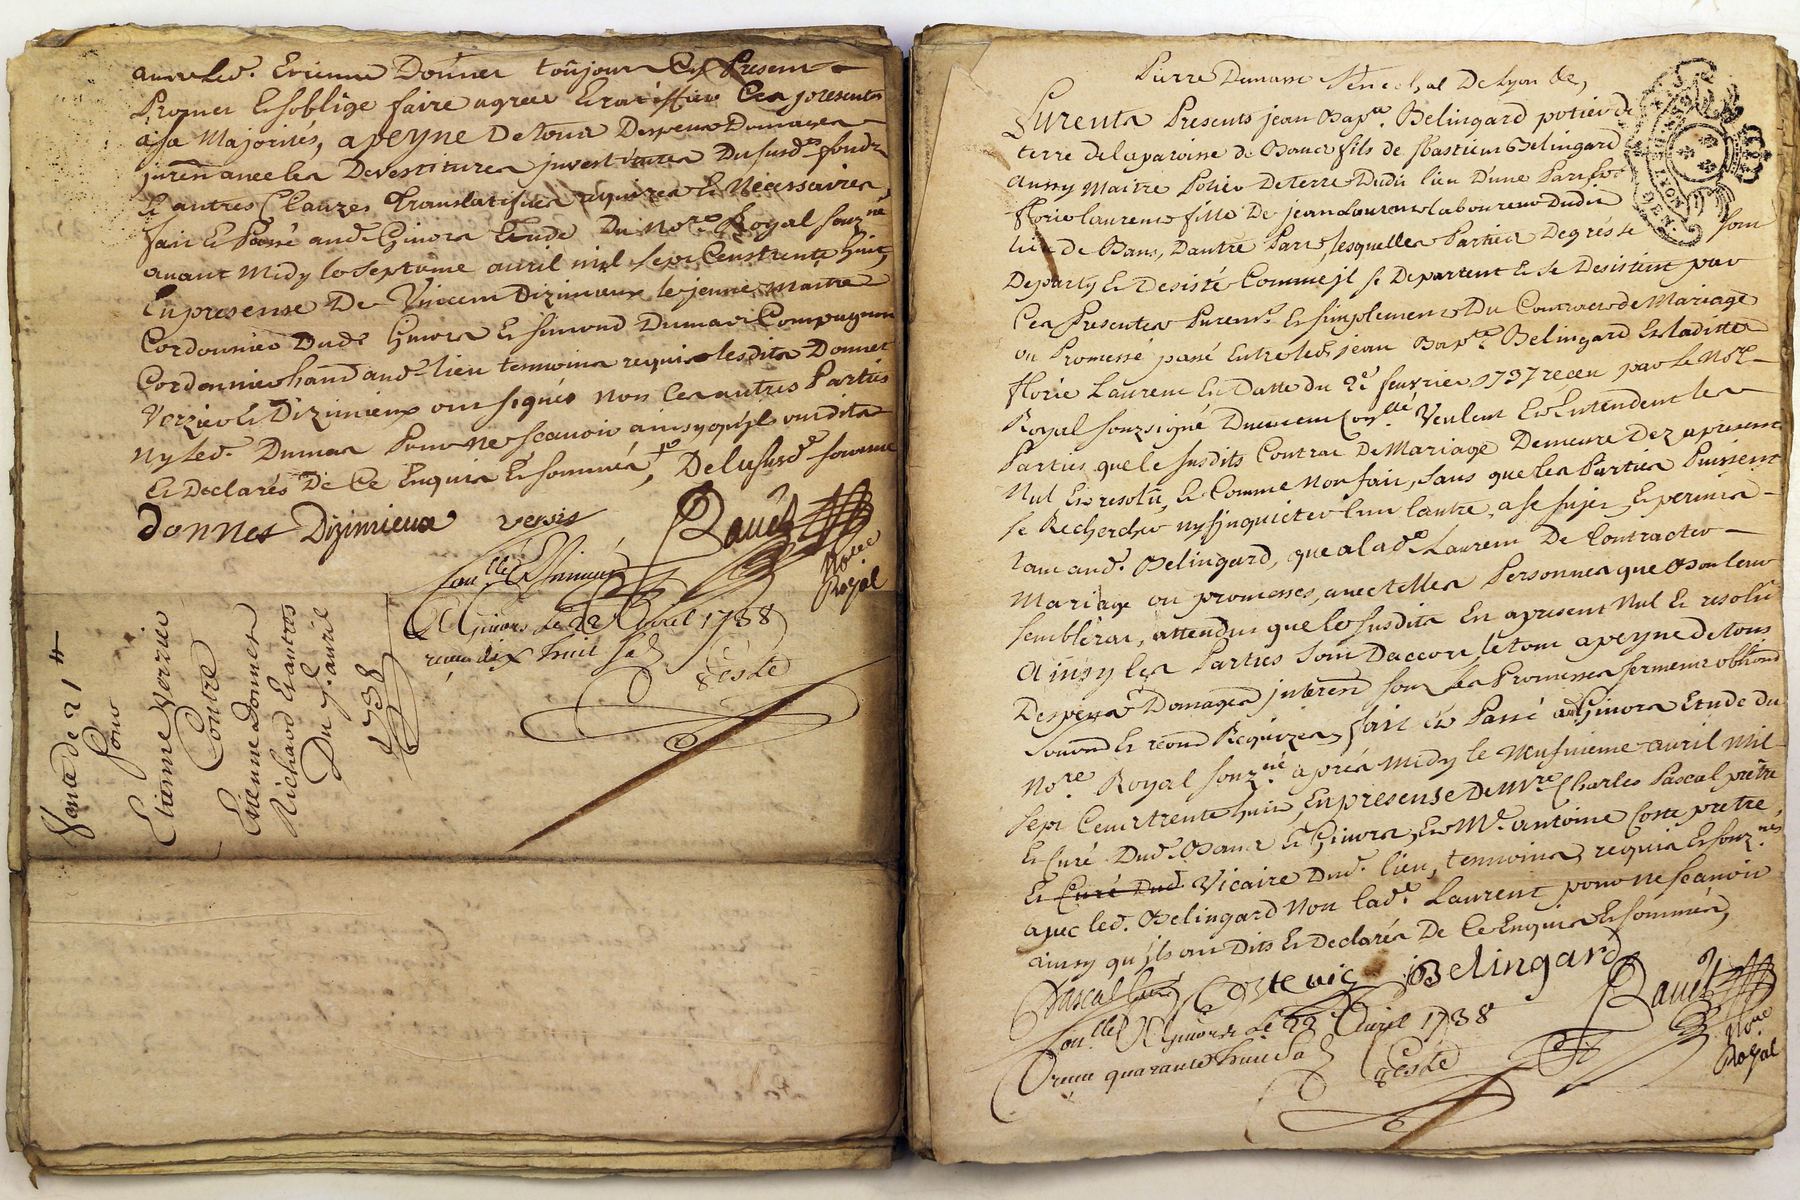 Led. Etienne Donnet toujours Cy Present
Promet Et soblige faire agreer Et ratiffier Ces presentes
a sa Majorités, a peyne De tous Despens Domages
avec les Devestitures juvestitures Du susd. fonds
Et autres Clauzes Translatifves requizes Et Necessaires,
fait Et Passé aud. Givors Etude Du No.re Royal souz.né
avant Midy le Septieme avril mil sept Cens trente huit,
En presense De Vincent Dizimieux le jeune maitre
Cordonnier Dud. Givors Et Simond Dumas Compagnon
Cordonnier aud. lieu temoins requis lesdits Donnet
Verzier Et Dizimieux ont signés non Les autres Parties
Ny led. Dumas Pour ne scavoir ainsy qu'jls ont dits
Et Declarés De Ce Enquis Et sommés, De la susd. somme
donnet Dizimieux versie
Bauet No.re
Royal
Con.llé
A Givors Le 22 Avril 1738
receu dix huit s.
Teste
Vante de 21 #
Pour
Etienne Verrier
Contre
Etienne Donnet
Richard Et autres
Du 7.e avril
1738
Pierre Dumas Senechal De Lyon &c,
Furents Presents jean Bap.te Belingard potier de
terre de la paroisse de Bans fils de Bastien Belingard
aussy Maitre Potier De terre Dudit lieu D'une Part, Et
florie Laurent fille De jean Laurent laboureur Dudit
lieu de Bans, Dautre Part, lesquelles Parties De gré se sont
Departÿ Et Desisté Comme jl se Departent Et se Desistent par
Ces Presentes Purem.t Et simplement Du Contract de Mariage
ou Promesse passé Entre led. jean Bap.te Belingard Et laditte
florie Laurent En Datte du 2.e fevrier 1737 receu par le No.re
Royal souzsigné Duement Con.llé Veulent Et Entendent les
Parties que le susdits Contrac De Mariage Demeure Dez apresent
Nul Et resolü, Et Comme Non fait, sans que les Parties Puissent
se Rechercher ny jnquieter lun lautre, a se sujet, Et permis
tant aud. Belingard, que a lad.e Laurent De Contracter
Mariage ou promesses, avec telles Personnes que Bon leur
semblérat, attendus que le susdits En apresent Nul Et resolü
Ainsy les Parties sont Daccort, le tout a peyne de tous
Despens Domages jnterets sous les Promesses serment oblion.
soumon. Et reon. Requizes, fait Et Passé aud. Givors Etude du
No.re Royal souz.né aprés Midy le Neufvieme avril Mil
sept Cent trente huit, En presense De M.re Charles Pascal prêtre
Et Curé Dud. Bans Et Givors, Et M.e antoine Coste pretre,
Et Curé Dud. Vicaire Dud. lieu, temoins requis Et souz.nés
avec led. Belingard Non lad.e Laurent pour ne scavoir
ainsy qu'jls ont Dits Et Declarés De Ce Enquis Et sommés,
Pascal Curé Coste vic j Belingard
Bauet No.re
Royal
Con.llé A Givors Le 22 Avril 1738
receu quarante huit s.
Teste